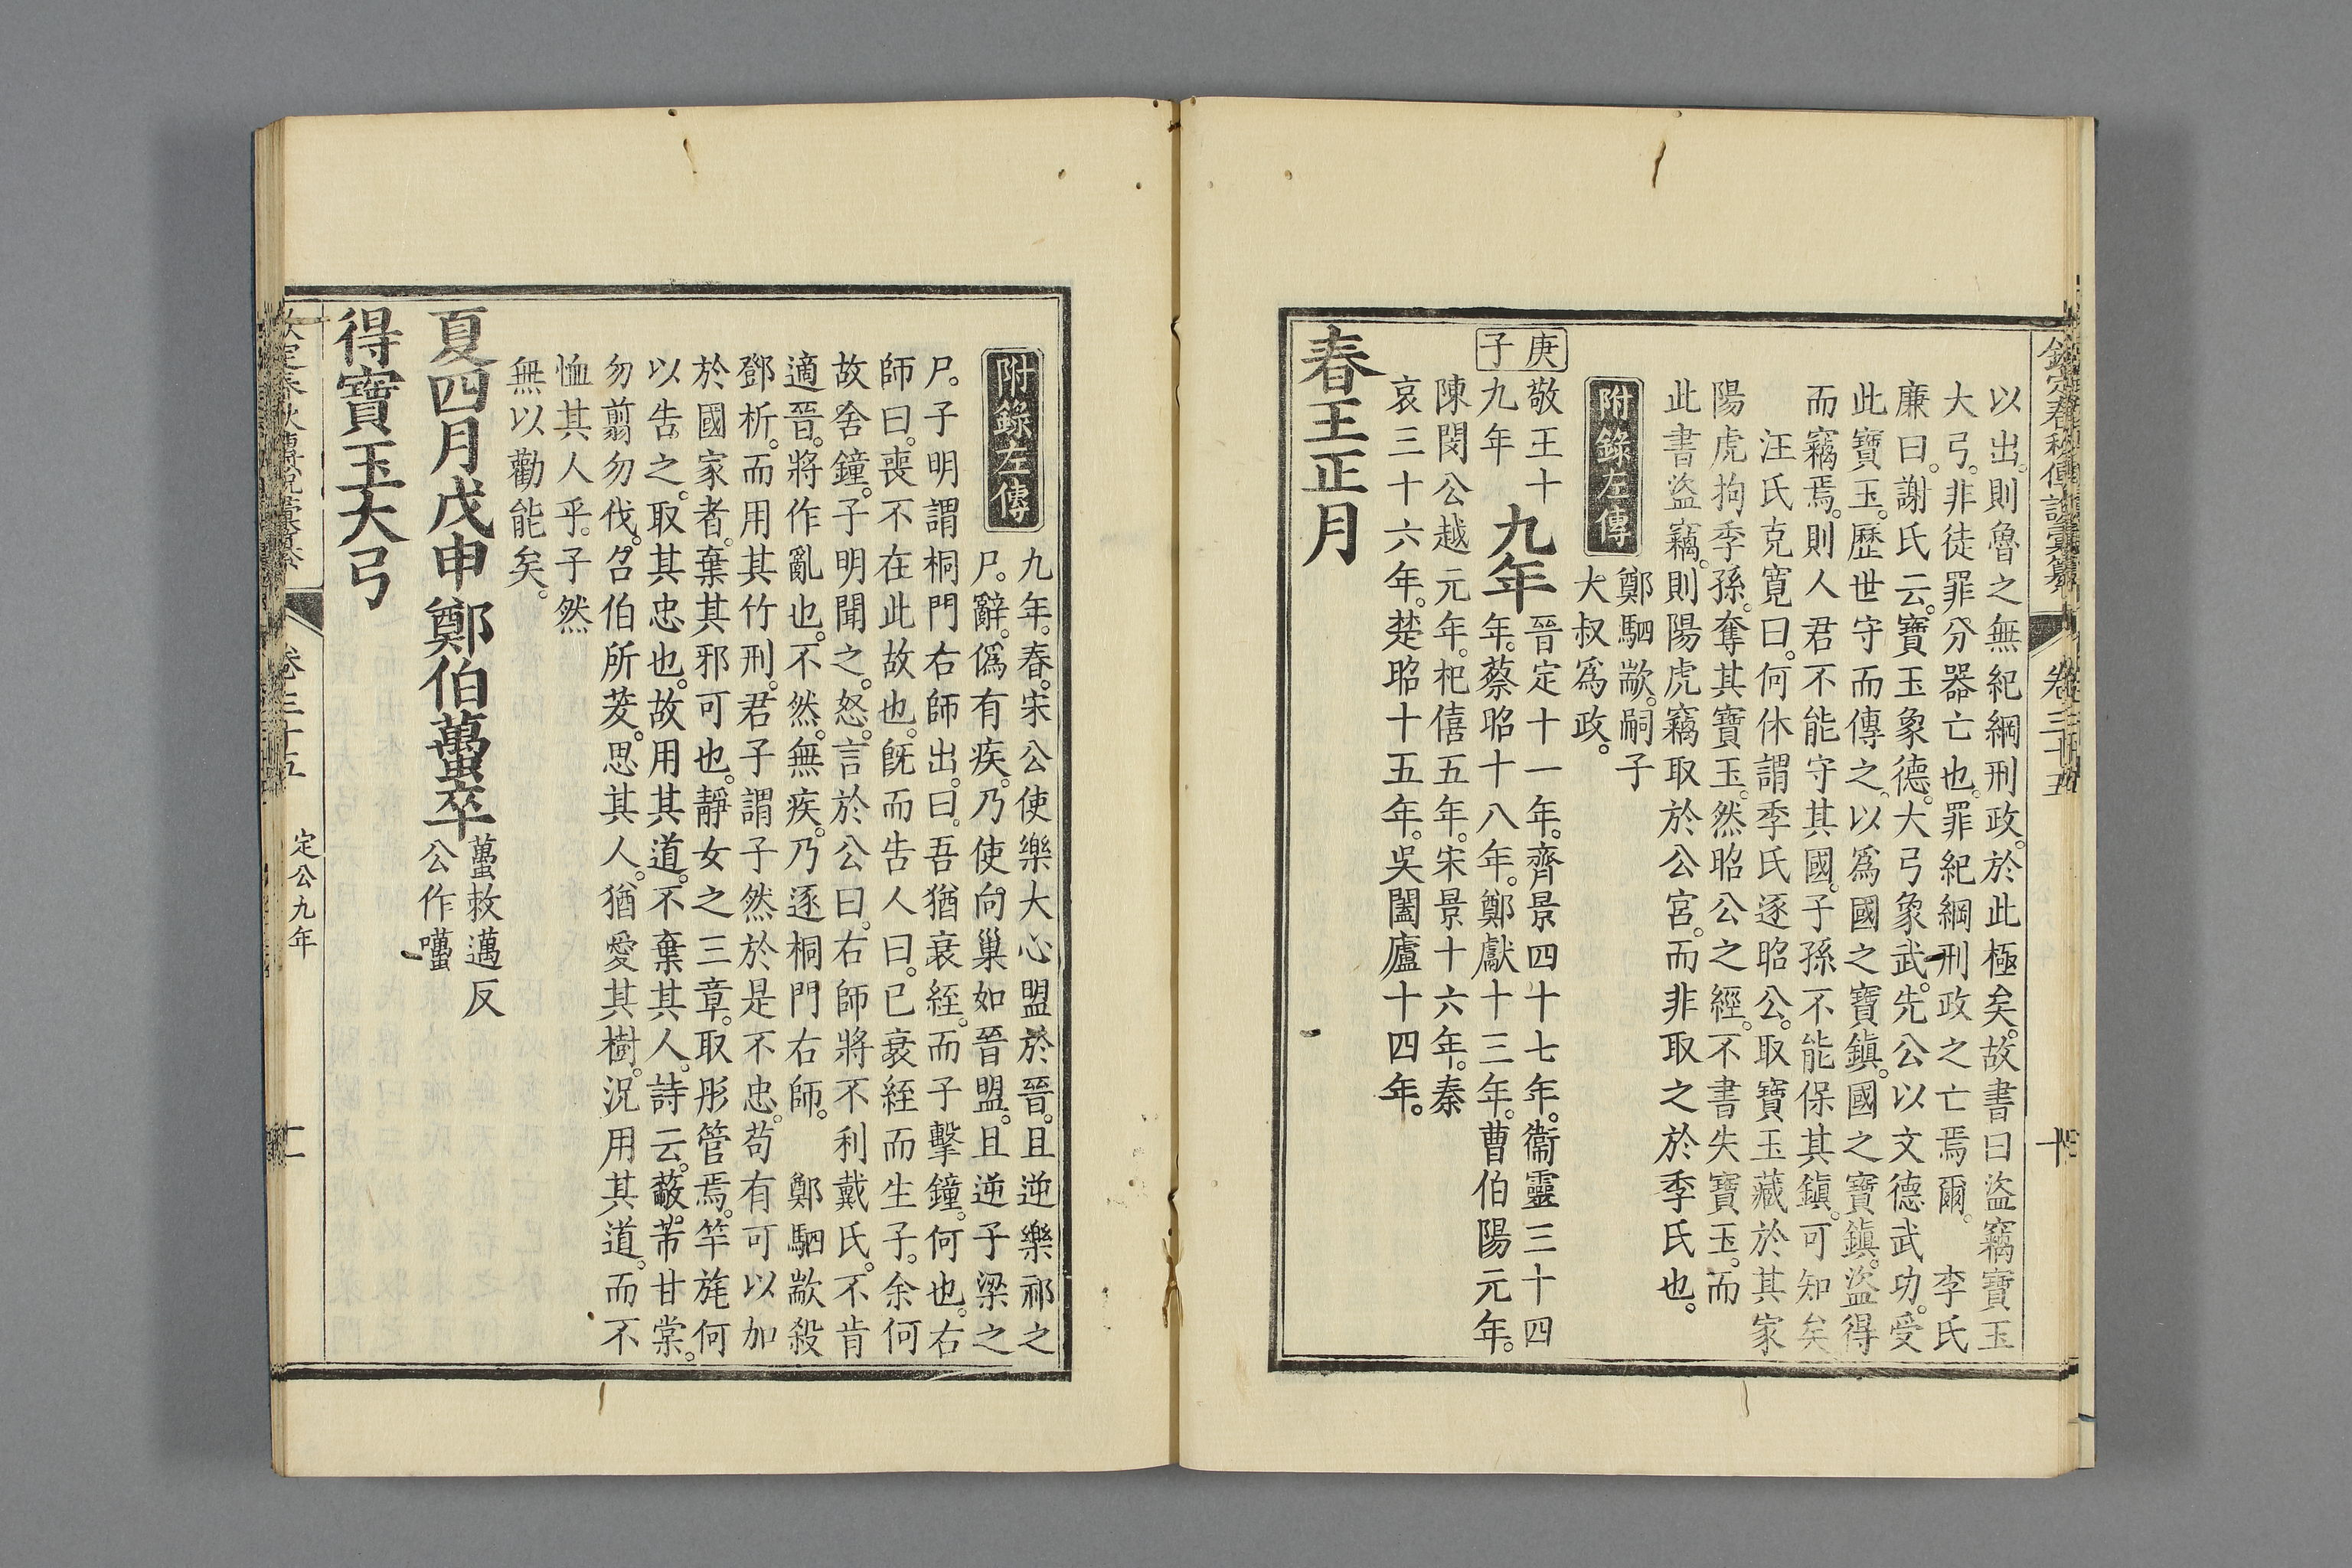 欽定春秋傳說彙纂 卷三十五 十
以出。則魯之無紀綱刑政。於此極矣。故書曰盜竊寶玉
大弓。非徒罪分器亡也。罪紀綱刑政之亡焉爾。 李氏
廉曰。謝氏云。寶玉象德。大弓象武。先公以文德武功。受
此寶玉。歷世守而傳之。以爲國之寶鎭。國之寶鎭。盜得
而竊焉。則人君不能守其國。子孫不能保其鎭。可知矣
汪氏克寬曰。何休謂季氏逐昭公。取寶玉藏於其家
陽虎拘季孫。奪其寶玉。然昭公之經。不書失寶玉。而
此書盜竊。則陽虎竊取於公宮。而非取之於季氏也。
附錄左傳 鄭駟歂。嗣子
大叔爲政。
庚子
敬王十
九年
九年
晉定十一年。齊景四十七年。衞靈三十四
年。蔡昭十八年。鄭獻十三年。曹伯陽元年。
陳閔公越元年。杞僖五年。宋景十六年。秦
哀三十六年。楚昭十五年。吳闔廬十四年。
春王正月
附錄左傳 九年。春。宋公使樂大心盟於晉。且逆樂祁之
尸。辭。僞有疾。乃使向巢如晉盟。且逆子梁之
尸。子明謂桐門右師出。曰。吾猶衰絰。而子擊鐘。何也。右
師曰。喪不在此故也。旣而告人曰。已衰絰而生子。余何
故舍鐘。子明聞之。怒。言於公曰。右師將不利戴氏。不肯
適晉。將作亂也。不然。無疾。乃逐桐門右師。 鄭駟歂殺
鄧析。而用其竹刑。君子謂子然於是不忠。苟有可以加
於國家者。棄其邪可也。靜女之三章。取彤管焉。竿旄何
以告之。取其忠也。故用其道。不棄其人。詩云。蔽芾甘棠。
勿翦勿伐。召伯所茇。思其人。猶愛其樹。況用其道。而不
恤其人乎。子然
無以勸能矣。
夏四月戊申鄭伯蠆卒 蠆敕邁反
公作囆
得寶玉大弓
欽定春秋傳說彙纂 卷三十五 定公九年 十一